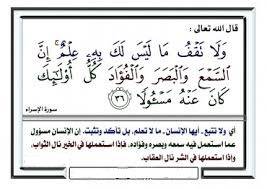 قال الله تعالى :
وَلَا تَقْفُ مَا لَيْسَ لَكَ بِهِۦ عِلْمٌ ۚ إِنَّ
ٱلسَّمْعَ وَٱلْبَصَرَ وَٱلْفُؤَادَ كُلُّ أُو۟لَٰٓئِكَ
كَانَ عَنْهُ مَسْـُٔولًا ٣٦
سورة الإسراء
أي ولا تتبع، أيها الإنسان، ما لا تعلم، بل تأكد وتثبت. إن الإنسان مسؤول
عما استعمل فيه سمعه وبصره وفؤاده، فإذا استعملها في الخير نال الثواب،
وإذا استعملها في الشر نال العقاب.